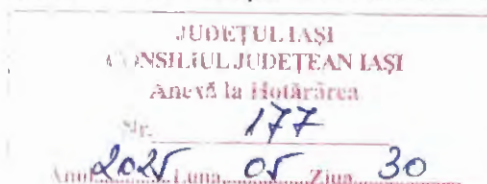 JUDEȚUL IAȘI
CONSILIUL JUDEȚEAN IAȘI
Anexă la Hotărârea
Nr. 177
Anul 2025 Luna 05 Ziua 30